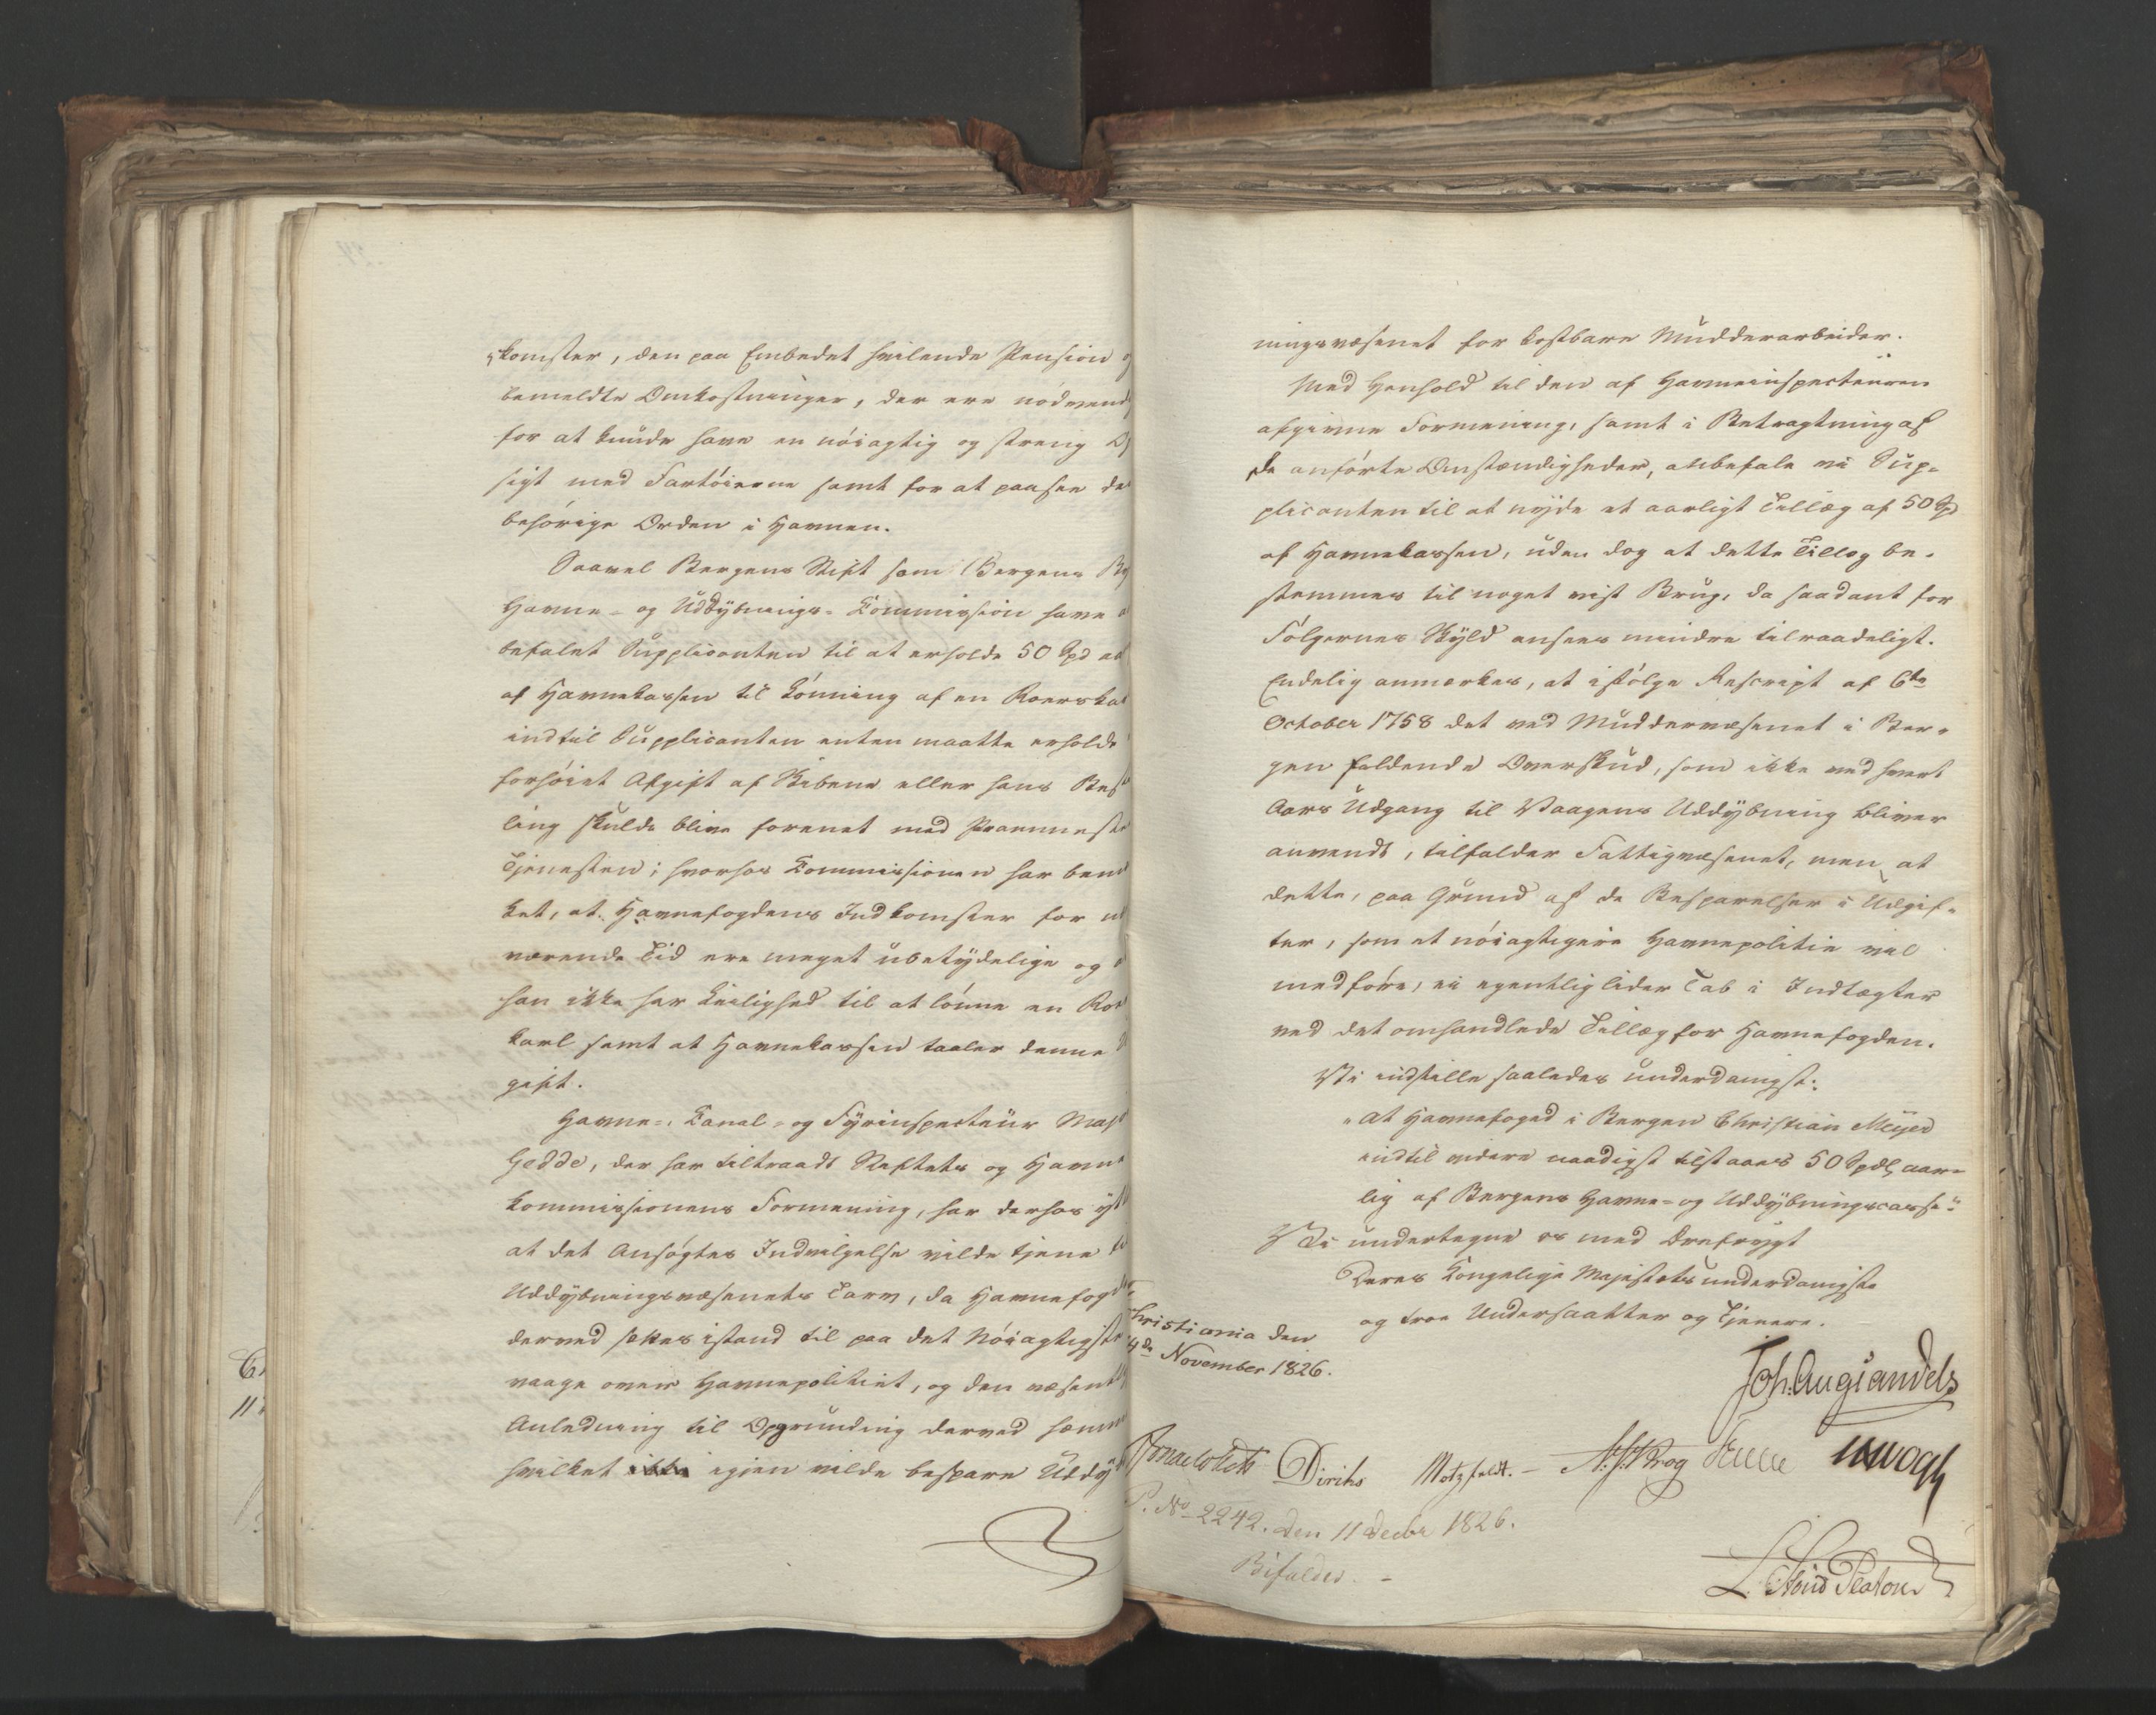 komster, den paa Embedet hvilende Pension o
bemeldte Omkostninger, der ere nödvend
for at kunde have en nöiagtig og streng O
sigt med Fartöierne samt for at paasee de
behörige Orden i Havnen.
Saavel Bergens Stift som Bergens By
Havne- og Uddÿbnings-Commission have a
befalet Supplicanten til at erholde 50 Spd aa
af Havnekassen til Lönning af en Roerska
indtil Supplicanten enten maatte erholde
forhöiet Afgift af Skibene eller hans Best
ling skulde blive forenet med Prammest
Tjenesten; hvorhos Commissionen har bem
ket, at Havnefogdens Indkomster for n
værende Tid ere meget ubetÿdelige og a
han ikke har Leilighed til at lönne en Roe
karl samt at Havnekassen taaler denne U
gift.
Havne-, Canal- og Fÿrinspecteur Maj
Gedde, der har tiltraadt Stiftets og Havne
kommissionens Formening, har derhos ÿt
at det Ansögtes Indvilgelse vilde tjene ti
Uddÿbningsvæsenets Tarv, da Havnefogde
derved sættes istand til paa det Nöiagtigste
vaage over Havnepolitiet, og den væsentl
Anledning til Opgrunding derved hæmm
hvilket igjen vilde bespare Uddÿb
ningsvæsenet for kostbare Mudderarbeider.
Med Henhold til den af Havneinspecteuren
afgivne Formening, samt i Betragtning af
de anförte Omstændigheder, anbefale vi Sup-
plicanten til at nÿde et aarligt Tillæg af 50 Spd
af Havnekassen, uden dog at dette Tillæg be-
stemmes til noget vist Brug, da saadant for
Fölgernes Skÿld ansees mindre tilraadeligt.
Endelig anmærkes, at ifölge Rescript af 6te
October 1758 det ved Muddervæsenet i Ber-
gen faldende Overskud, som ikke ved hvert
Aars Udgang til Vaagens Uddÿbning bliver
anvendt, tilfalder Fattigvæsenet, men at
dette, paa Grund af de Besparelser i Udgif-
ter, som et nöiagtigere Havnepolitie vil
medföre, ei egentlig lider Tab i Indtægter
ved det omhandlede Tillæg for Havnefogden.
Vi indstille saaledes underdanigst:
"at Havnefoged i Bergen Christian Meÿer
indtil videre naadigst tilstaaes 50 Spdl. aar-
lig af Bergens Havne- og Uddÿbningscasse."
Vi undertegne os med Ærefrygt
Deres Kongelige Majestæts underdanigste
og troe Undersaatter og Tjenere.
Christiania den
4de November 1826.
Joh. Aug. Sandels
Diriks Motzfeldt. - Krog
P. No 2242. den 11 Decbr 1826.
Bifaldes. -
L. Stoud Platou